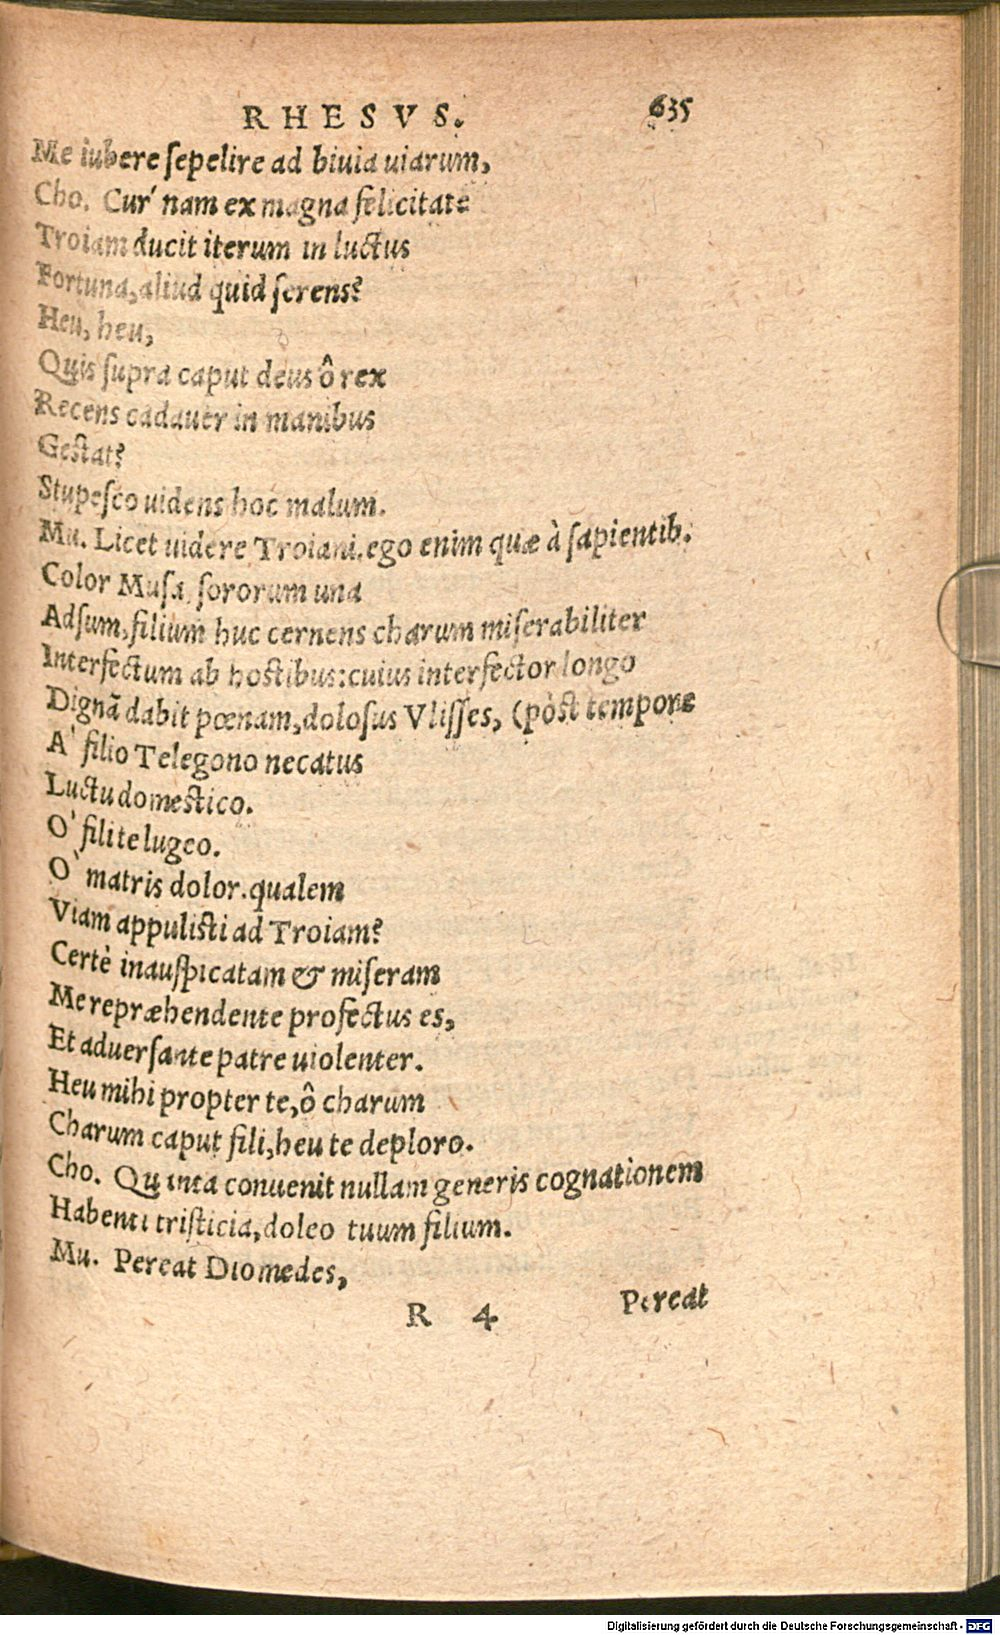 RHESVS. 635
Me iubere ſepelire ad biuia uiarum,
Cho. Cur' nam ex magna felicitate
Troiam ducit iterum in luctus
Fortuna, aliud quid ſerens?
Heu, heu,
Quis ſupra caput deus ô rex
Recens cadauer in manibus
Geſtat?
Stupeſco uidens hoc malum.
Mu. Licet uidere Troiani. ego enim quæ à ſapientib.
Color Muſa, ſororum una
Adſum, filium huc cernens charum miſerabiliter
Interfectum ab hoſtibus: cuius interfector longo
Dignã dabit pœnam, doloſus Vliſſes, (pòſt tempore
A' filio Telegono necatus
Luctu domeſtico.
O' fili te lugeo.
O` matris dolor. qualem
Viam appuliſti ad Troiam?
Certè inauſpicatam & miſeram
Me repræhendente profectus es,
Et aduerſante patre uiolenter.
Heu mihi propter te, ô charum
Charum caput fili, heu te deploro.
Cho. Quanta conuenit nullam generis cognationem
Habenti triſticia, doleo tuum filium.
Mu. Pereat Diomedes,
R 4 Pereat
Digitalisierung gefördert durch die Deutsche Forschungsgemeinschaft - DFG